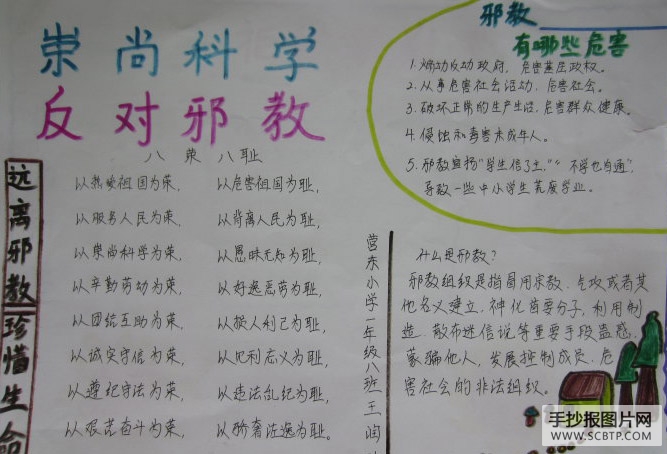 崇尚科学
反对邪教
八荣八耻
以热爱祖国为荣, 以危害祖国为耻,
以服务人民为荣, 以背离人民为耻,
以崇尚科学为荣, 以愚昧无知为耻,
以辛勤劳动为荣, 以好逸恶劳为耻,
以团结互助为荣, 以损人利己为耻,
以诚实守信为荣, 以见利忘义为耻,
以遵纪守法为荣, 以违法乱纪为耻,
以艰苦奋斗为荣, 以骄奢淫逸为耻。
远离邪教珍惜生命
营东小学一年级八班王润
邪教
有哪些危害
1. 煽动反动政府,危害基层政权。
2. 从事危害社会活动,危害社会。
3. 破坏正常的生产生活,危害群众健康。
4. 侵蚀和毒害未成年人。
5. 邪教宣扬"学生信了主,""不学也内通",
导致一些中小学生荒废学业。
什么是邪教?
邪教组织是指冒用宗教、气功或者其
他名义建立,神化首要分子,利用制
造、散布迷信说等重要手段蛊惑,
蒙骗他人,发展控制成员、危
害社会的非法组织。
手抄报图片网
WWW.SCBTP.COM